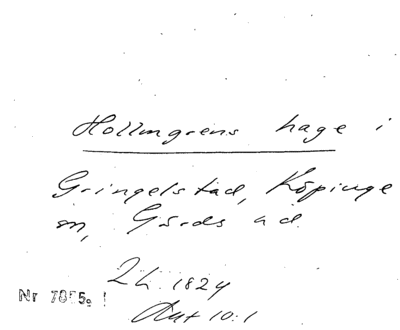 Hollmgrens hage i
Gringelstad, Köpinge
sn, Gärds hd.
2 L. 1824
Aut 10:1
Nr 7855:1